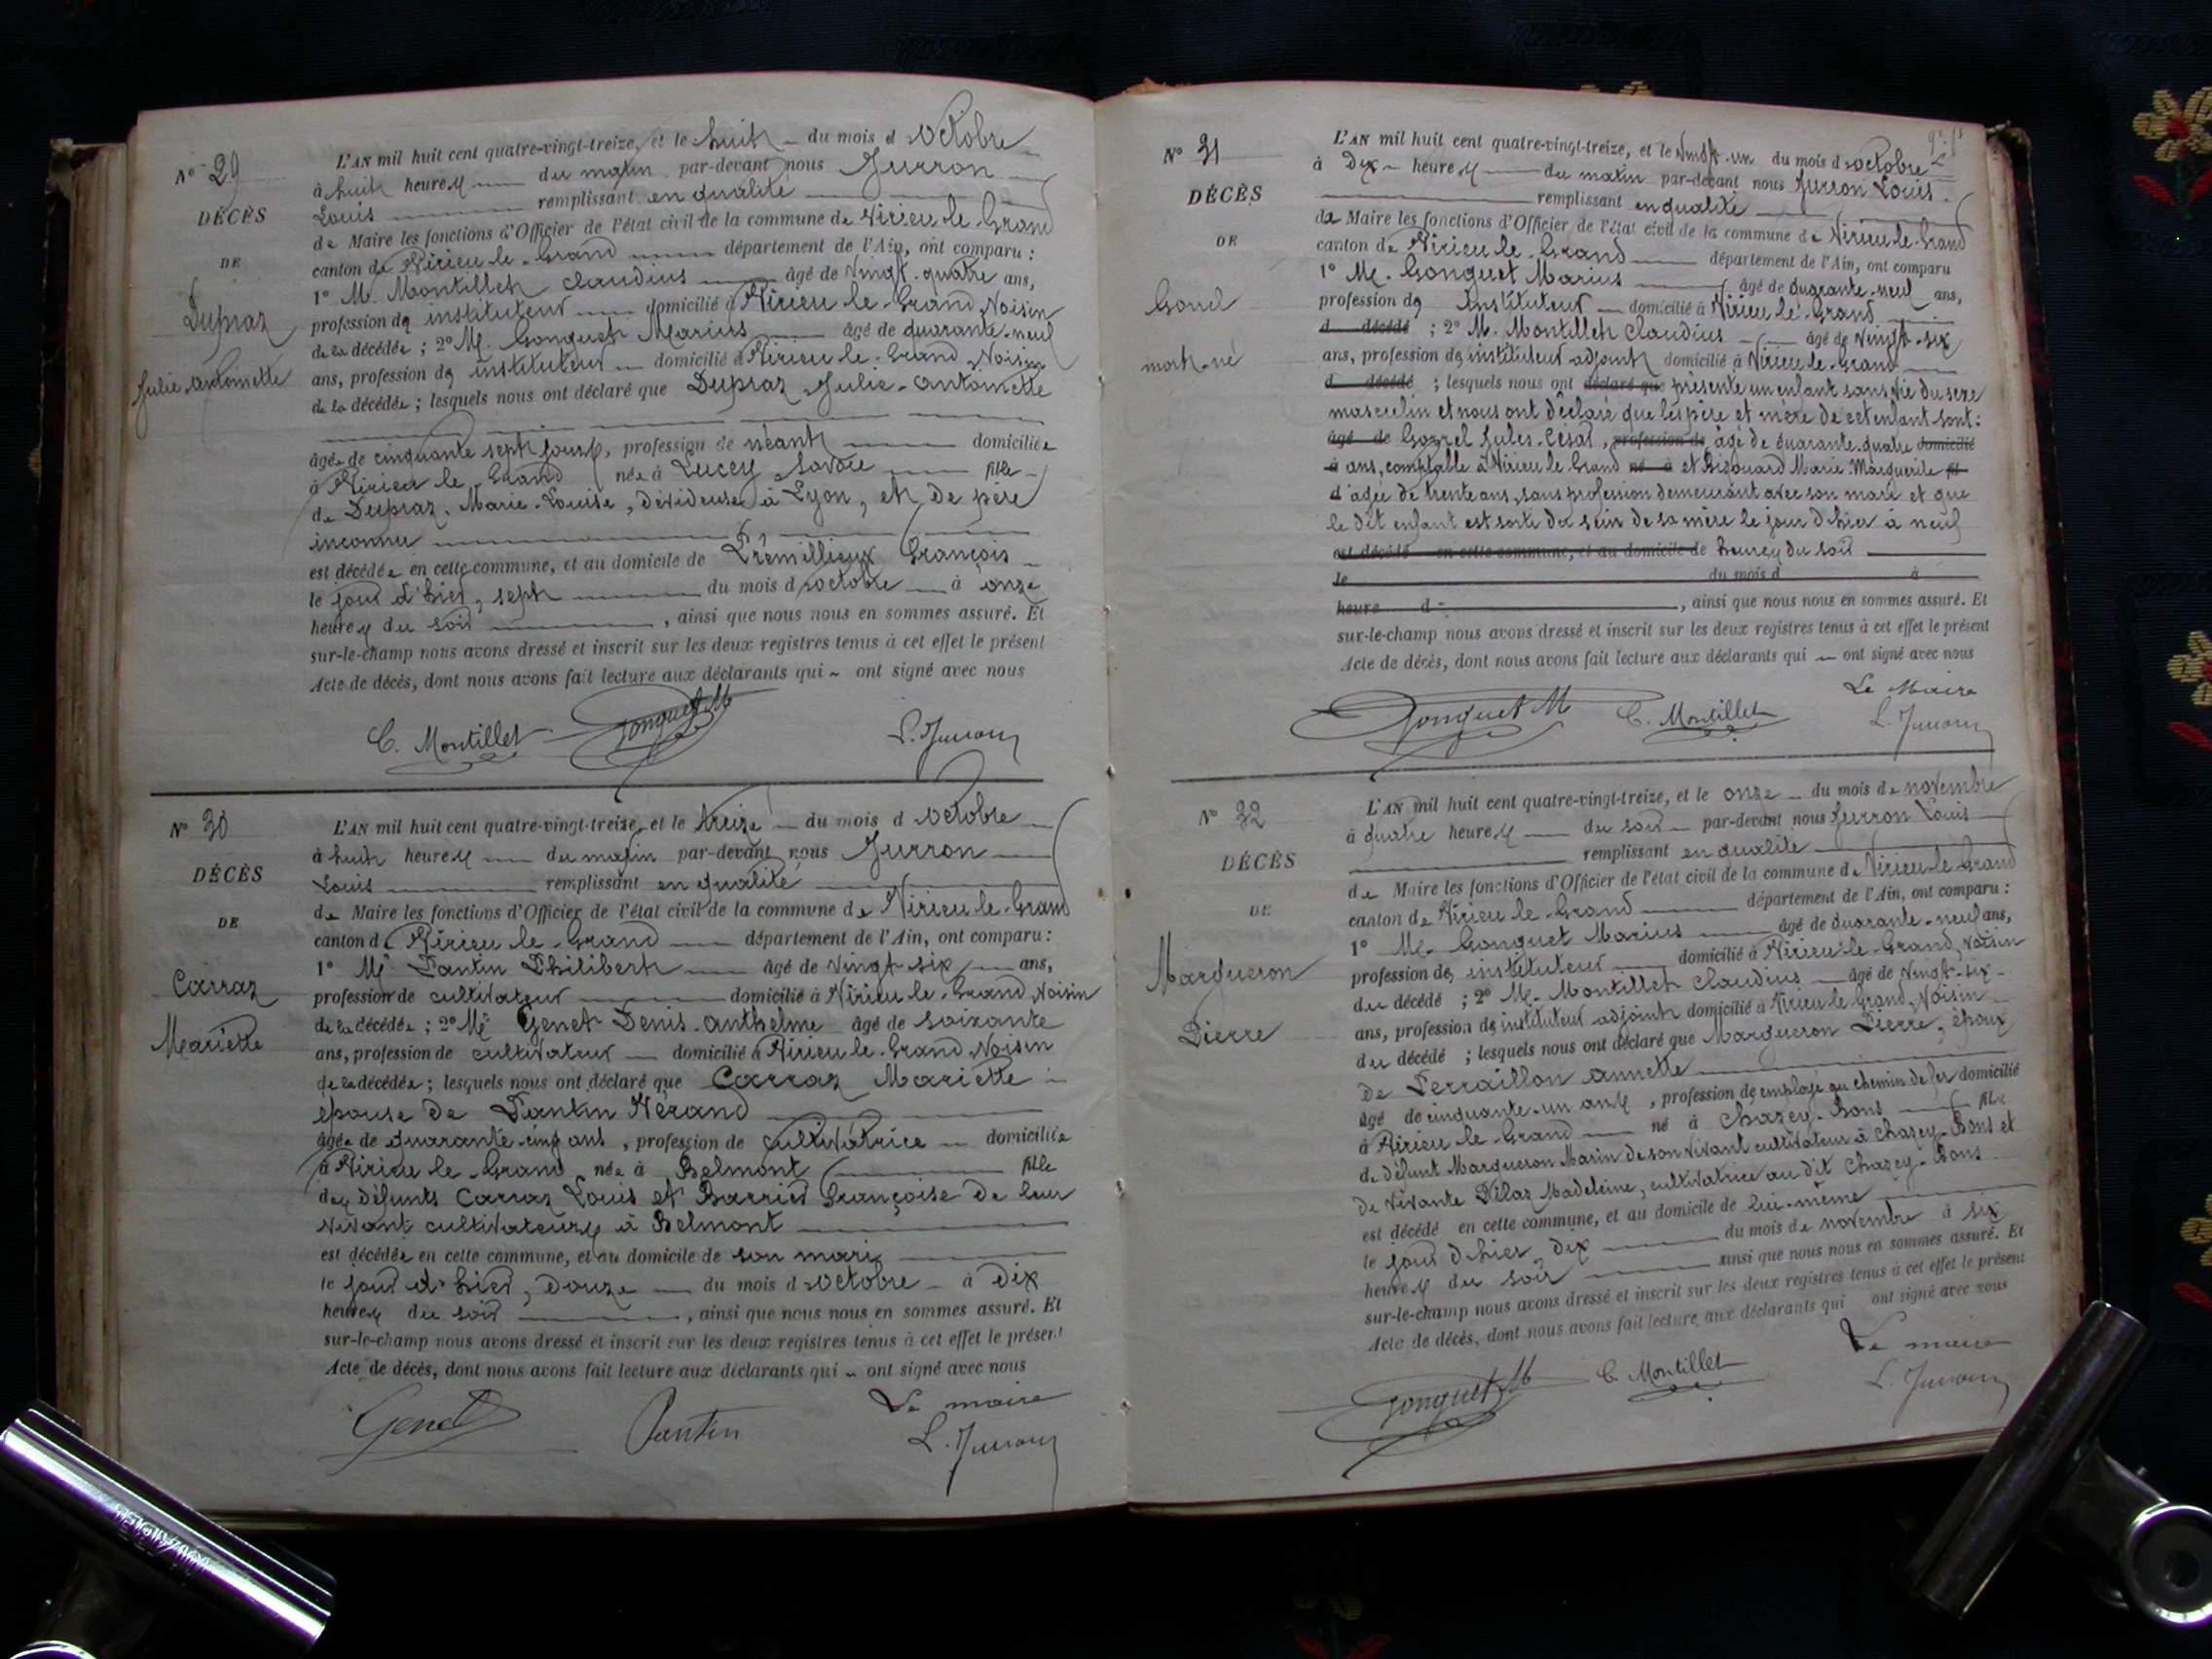 N° 29
DÉCÈS
DE
Dupraz
Julie-Antoinette
L'AN mil huit cent quatre-vingt-treize, et le huit du mois d'octobre
à huit heures du matin par-devant nous Jurron
Louis remplissant en qualité
de Maire les fonctions d'Officier de l'état civil de la commune de Virieu-le-Grand
canton de Virieu-le-Grand département de l'Ain, ont comparu :
1° M. Montillet Claudius âgé de vingt-quatre ans,
profession de instituteur domicilié à Virieu-le-Grand, voisin
de la décédée ; 2° M. Gonguet Marius âgé de quarante-neuf
ans, profession de instituteur domicilié à Virieu-le-Grand, voisin
de la décédée ; lesquels nous ont déclaré que Dupraz Julie-Antoinette
âgée de cinquante sept jours, profession de néant domiciliée
à Virieu-le-Grand née à Lucey, Savoie fille
de Dupraz, Marie-Louise, dévideuse à Lyon, et de père
inconnu
est décédée en cette commune, et au domicile de Prémillieux François
le jour d'hier, sept du mois d'octobre à onze
heures du soir, ainsi que nous nous en sommes assuré. Et
sur-le-champ nous avons dressé et inscrit sur les deux registres tenus à cet effet le présent
Acte de décès, dont nous avons fait lecture aux déclarants qui ont signé avec nous
C. Montillet Gonguet M L. Jurron
N° 30
DÉCÈS
DE
Carraz
Mariette
L'AN mil huit cent quatre-vingt-treize, et le treize du mois d'octobre
à huit heures du matin par-devant nous Jurron
Louis remplissant en qualité
de Maire les fonctions d'Officier de l'état civil de la commune de Virieu-le-Grand
canton de Virieu-le-Grand département de l'Ain, ont comparu :
1° Mr Pantin Philibert âgé de vingt-six ans,
profession de cultivateur domicilié à Virieu-le-Grand, voisin
de la décédée ; 2° Mr Genet Denis-Anthelme âgé de soixante
ans, profession de cultivateur domicilié à Virieu-le-Grand, voisin
de la décédée ; lesquels nous ont déclaré que Carraz Mariette
épouse de Pantin Vérand
âgée de quarante-cinq ans, profession de cultivatrice domiciliée
à Virieu-le-Grand née à Belmont fille
des défunts Carraz Louis et Barrier Françoise de leur
vivant cultivateurs à Belmont
est décédée en cette commune, et au domicile de son mari
le jour d'hier, douze du mois d'octobre à dix
heures du soir, ainsi que nous nous en sommes assuré. Et
sur-le-champ nous avons dressé et inscrit sur les deux registres tenus à cet effet le présent
Acte de décès, dont nous avons fait lecture aux déclarants qui ont signé avec nous
Genet Pantin Le maire
L. Jurron
N° 31
DÉCÈS
DE
mort-né
L'AN mil huit cent quatre-vingt-treize, et le vingt-un du mois d'octobre
à dix heures du matin par-devant nous Jurron Louis
remplissant en qualité
de Maire les fonctions d'Officier de l'état civil de la commune de Virieu-le-Grand
canton de Virieu-le-Grand département de l'Ain, ont comparu
1° M. Gonguet Marius âgé de quarante-neuf ans,
profession de Instituteur domicilié à Virieu-le-Grand
d décédé ; 2° M. Montillet Claudius âgé de vingt-six
ans, profession de instituteur adjoint domicilié à Virieu-le-Grand
d décédé ; lesquels nous ont déclaré que présenté un enfant sans vie du sexe
masculin et nous ont déclaré que les père et mère de cet enfant sont :
âgé de Jules-César, profession de âgé de quarante-quatre domicilié
à ans, comptable à Virieu le Grand né à et Marie-Marguerite fil
d'agée de trente ans, sans profession demeurant avec son mari et que
le dit enfant est sorti du sein de sa mère le jour d'hier à neuf
est décédé en cette commune, et au domicile de heures du soir
le du mois d à
heure d , ainsi que nous nous en sommes assuré. Et
sur-le-champ nous avons dressé et inscrit sur les deux registres tenus à cet effet le présent
Acte de décès, dont nous avons fait lecture aux déclarants qui ont signé avec nous
Le Maire
Gonguet M C. Montillet L. Jurron
N° 32
DÉCÈS
DE
Margueron
Pierre
L'AN mil huit cent quatre-vingt-treize, et le onze du mois de novembre
à quatre heures du soir par-devant nous Jurron Louis
remplissant en qualité
de Maire les fonctions d'Officier de l'état civil de la commune de Virieu-le-Grand
canton de Virieu-le-Grand département de l'Ain, ont comparu :
1° M. Gonguet Marius âgé de quarante-neuf ans,
profession de instituteur domicilié à Virieu-le-Grand, voisin
du décédé ; 2° M. Montillet Claudius âgé de vingt-six
ans, profession de instituteur adjoint domicilié à Virieu le Grand, voisin
du décédé ; lesquels nous ont déclaré que Margueron Pierre, époux
de Perraillon Annette
âgé de cinquante-un ans, profession de employé au chemin de fer domicilié
à Virieu-le-Grand né à Chazey-Bons fils
de défunt Margueron Marin de son vivant cultivateur à Chazey-Bons et
de vivante Dilaz Madeleine, cultivatrice au dit Chazey-Bons
est décédé en cette commune, et au domicile de lui-même
le jour d'hier, dix du mois de novembre à six
heures du soir ainsi que nous nous en sommes assuré. Et
sur-le-champ nous avons dressé et inscrit sur les deux registres tenus à cet effet le présent
Acte de décès, dont nous avons fait lecture aux déclarants qui ont signé avec nous
Le maire
Gonguet M C. Montillet L. Jurron